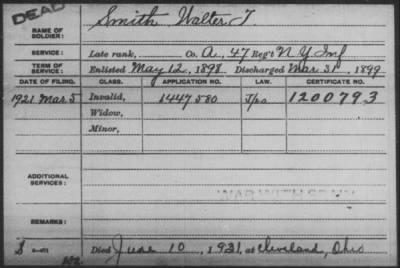 DEAD
NAME OF SOLDIER: Smith Walter T.
SERVICE: Late rank, Co. A, 47 Reg't N Y Inf
TERM OF SERVICE: Enlisted May 12, 1898 Discharged Mar. 31, 1899
DATE OF FILING. CLASS. APPLICATION NO. LAW. CERTIFICATE NO.
1921 Mar. 5 Invalid, 1447580 1200793
Widow,
Minor,
ADDITIONAL SERVICES:
WAR WITH SPAIN
REMARKS:
S
Died June 10, 1931, at Cleveland, Ohio